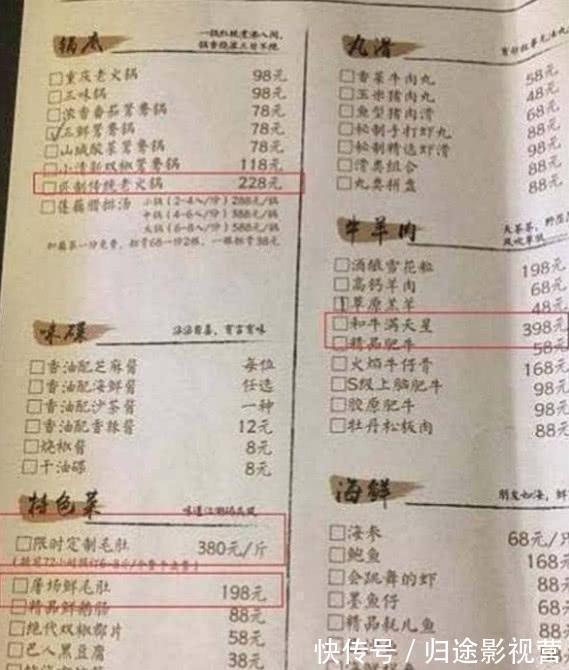 锅底
一锅红艳煮沸人间,
重庆老火锅 98元
三味锅 98元
浓香番茄鸳鸯锅 78元
三鲜鸳鸯锅 78元
山城酸菜鸳鸯锅 78元
小清新双椒鸳鸯锅 118元
匠制传统老火锅 228元
莲藕猪排汤 小锅(2-4人/份)288元/锅
中锅(4-6人/份)388元/锅
大锅(6-8人/份)588元/锅
味碟
沾沾自喜,有言有味
香油配芝麻酱 每位
香油配海鲜酱 任选
香油配沙茶酱 一种
香油配香辣酱 12元
烧椒酱 8元
干油碟 8元
特色菜
味道江湖
限时定制毛肚 380元/斤
屠场鲜毛肚 198元
精品鲜鹅肠 88元
绝代双椒郡片 58元
巴人黑豆腐 38元
丸滑
香菜牛肉丸 58元
玉米猪肉丸 48元
鱼型猪肉滑 68元
松制手打虾丸 88元
松制精选虾滑 88元
滑类组合
丸类拼盘 88元
牛羊肉
酒酿雪花粒 198元
高钙羊肉 68元
草原羔羊 48元
和牛满天星 398元
精品肥牛 58元
火焰牛仔骨 168元
S级上脑肥牛 98元
胶原肥牛 98元
牡丹松板肉 88元
海鲜
朋友如海,鲜
海参 68元/只
鲍鱼 168元
会跳舞的虾 88元
墨鱼仔 68元
精品耗儿鱼 88元
快传号/归途影视营